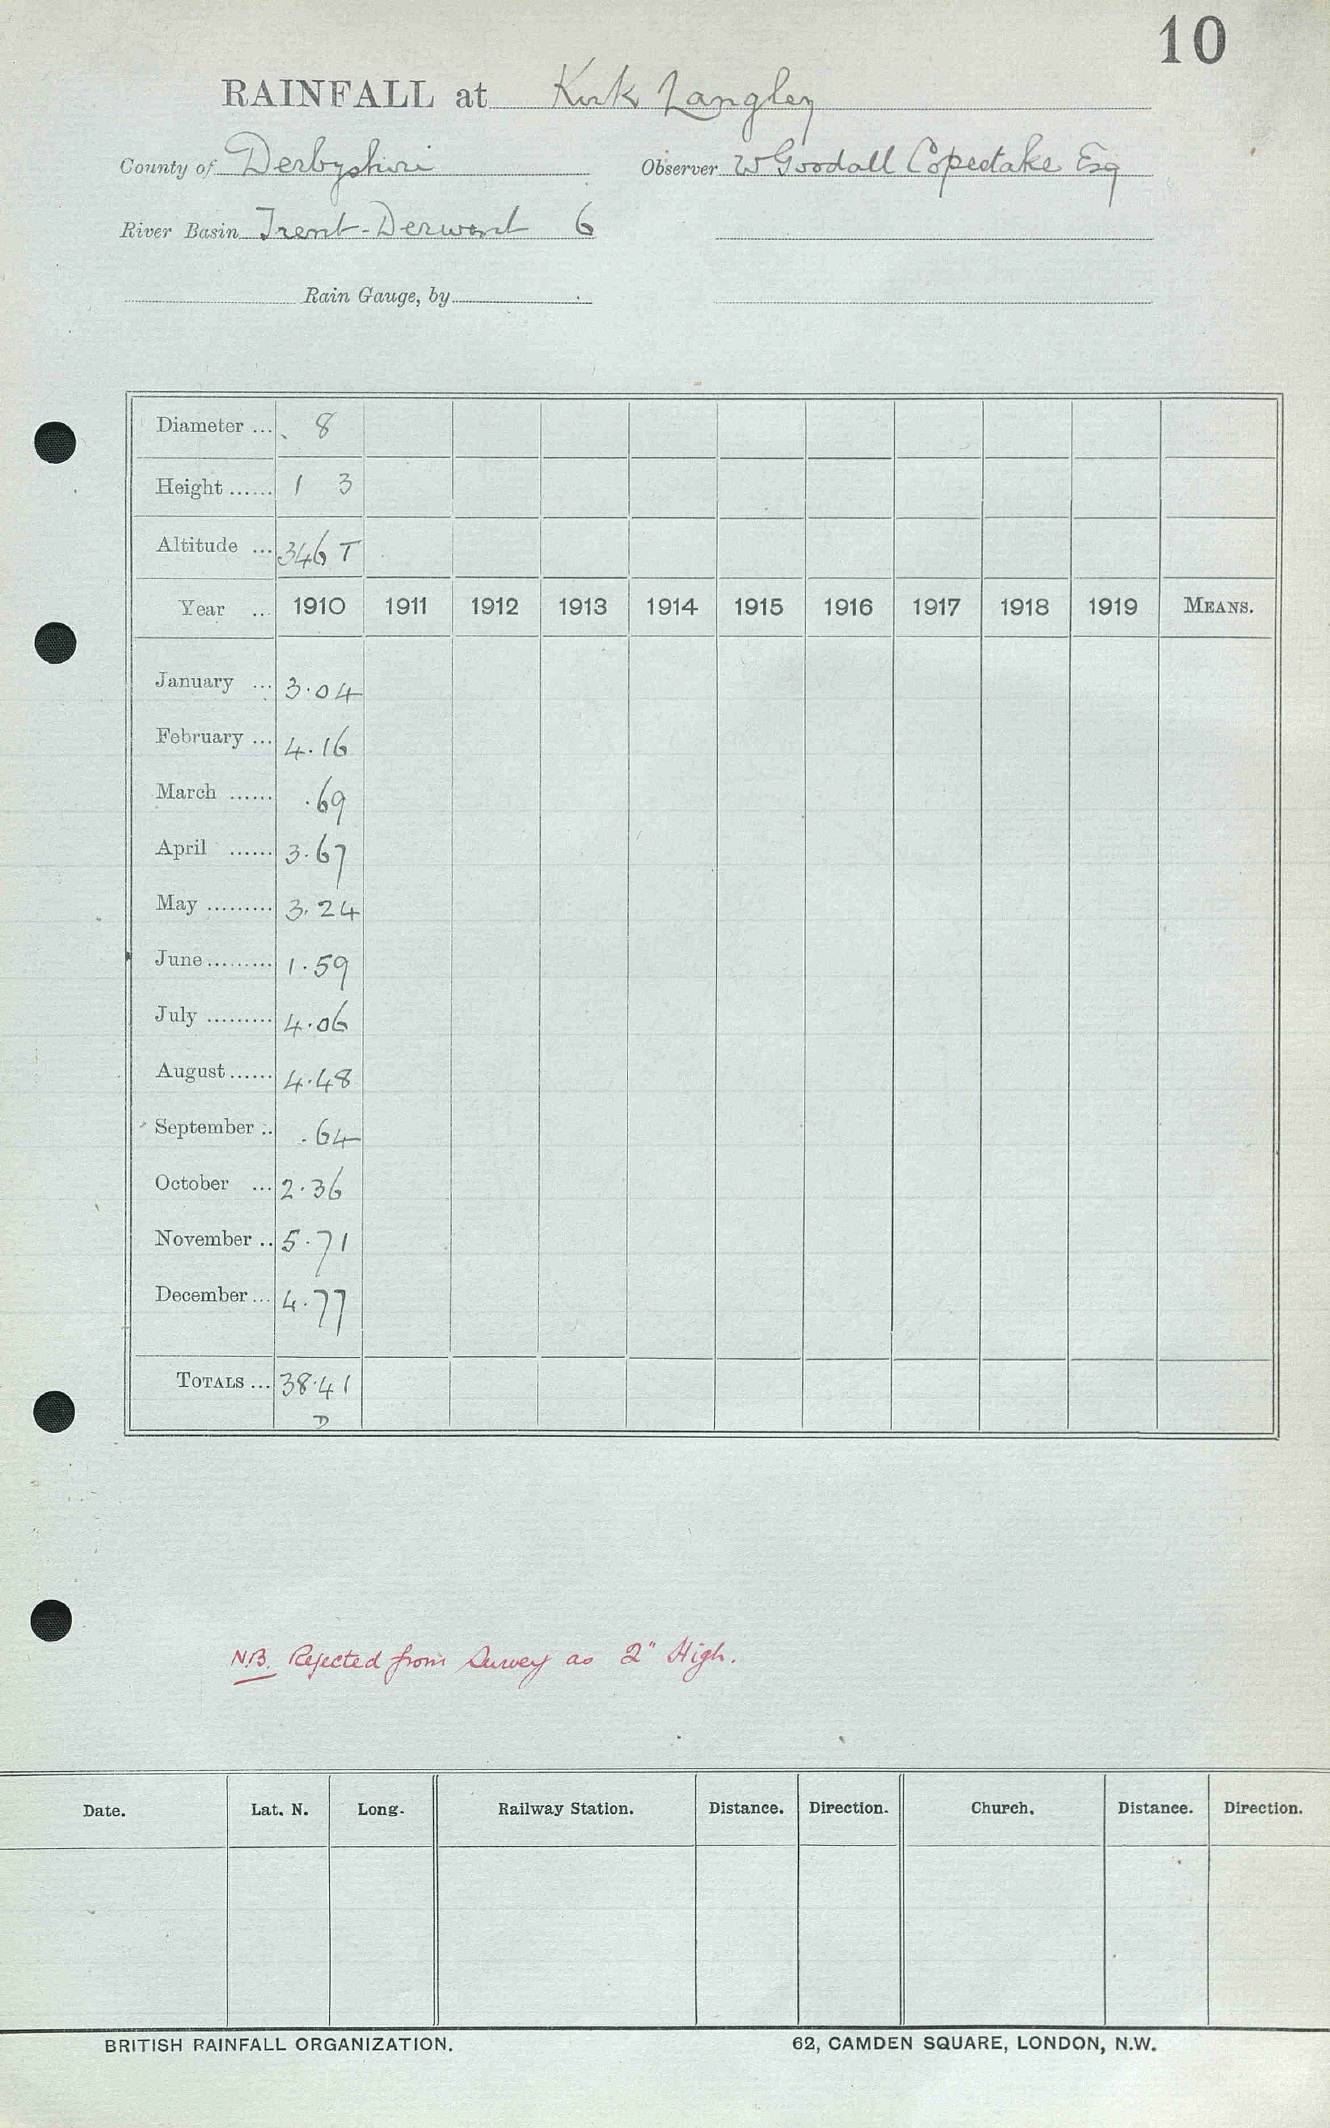 10
RAINFALL at Kirk Langley
County of Derbyshire Observer W Goodall Copestake Esq
River Basin Trent-Derwent 6
Rain Gauge, by
Diameter ... 8
Height ...... 1 3
Altitude ... 346 T
Year ... 1910 1911 1912 1913 1914 1915 1916 1917 1918 1919 MEANS.
January ... 3.04
February ... 4.16
March ...... .69
April ...... 3.67
May ......... 3.24
June ......... 1.59
July ......... 4.06
August ...... 4.48
September .. .64
October ... 2.36
November .. 5.71
December ... 4.77
TOTALS ... 38.41
D
N.B. Rejected from Survey as 2" High.
Date. Lat. N. Long. Railway Station. Distance. Direction. Church. Distance. Direction.
BRITISH RAINFALL ORGANIZATION. 62, CAMDEN SQUARE, LONDON, N.W.